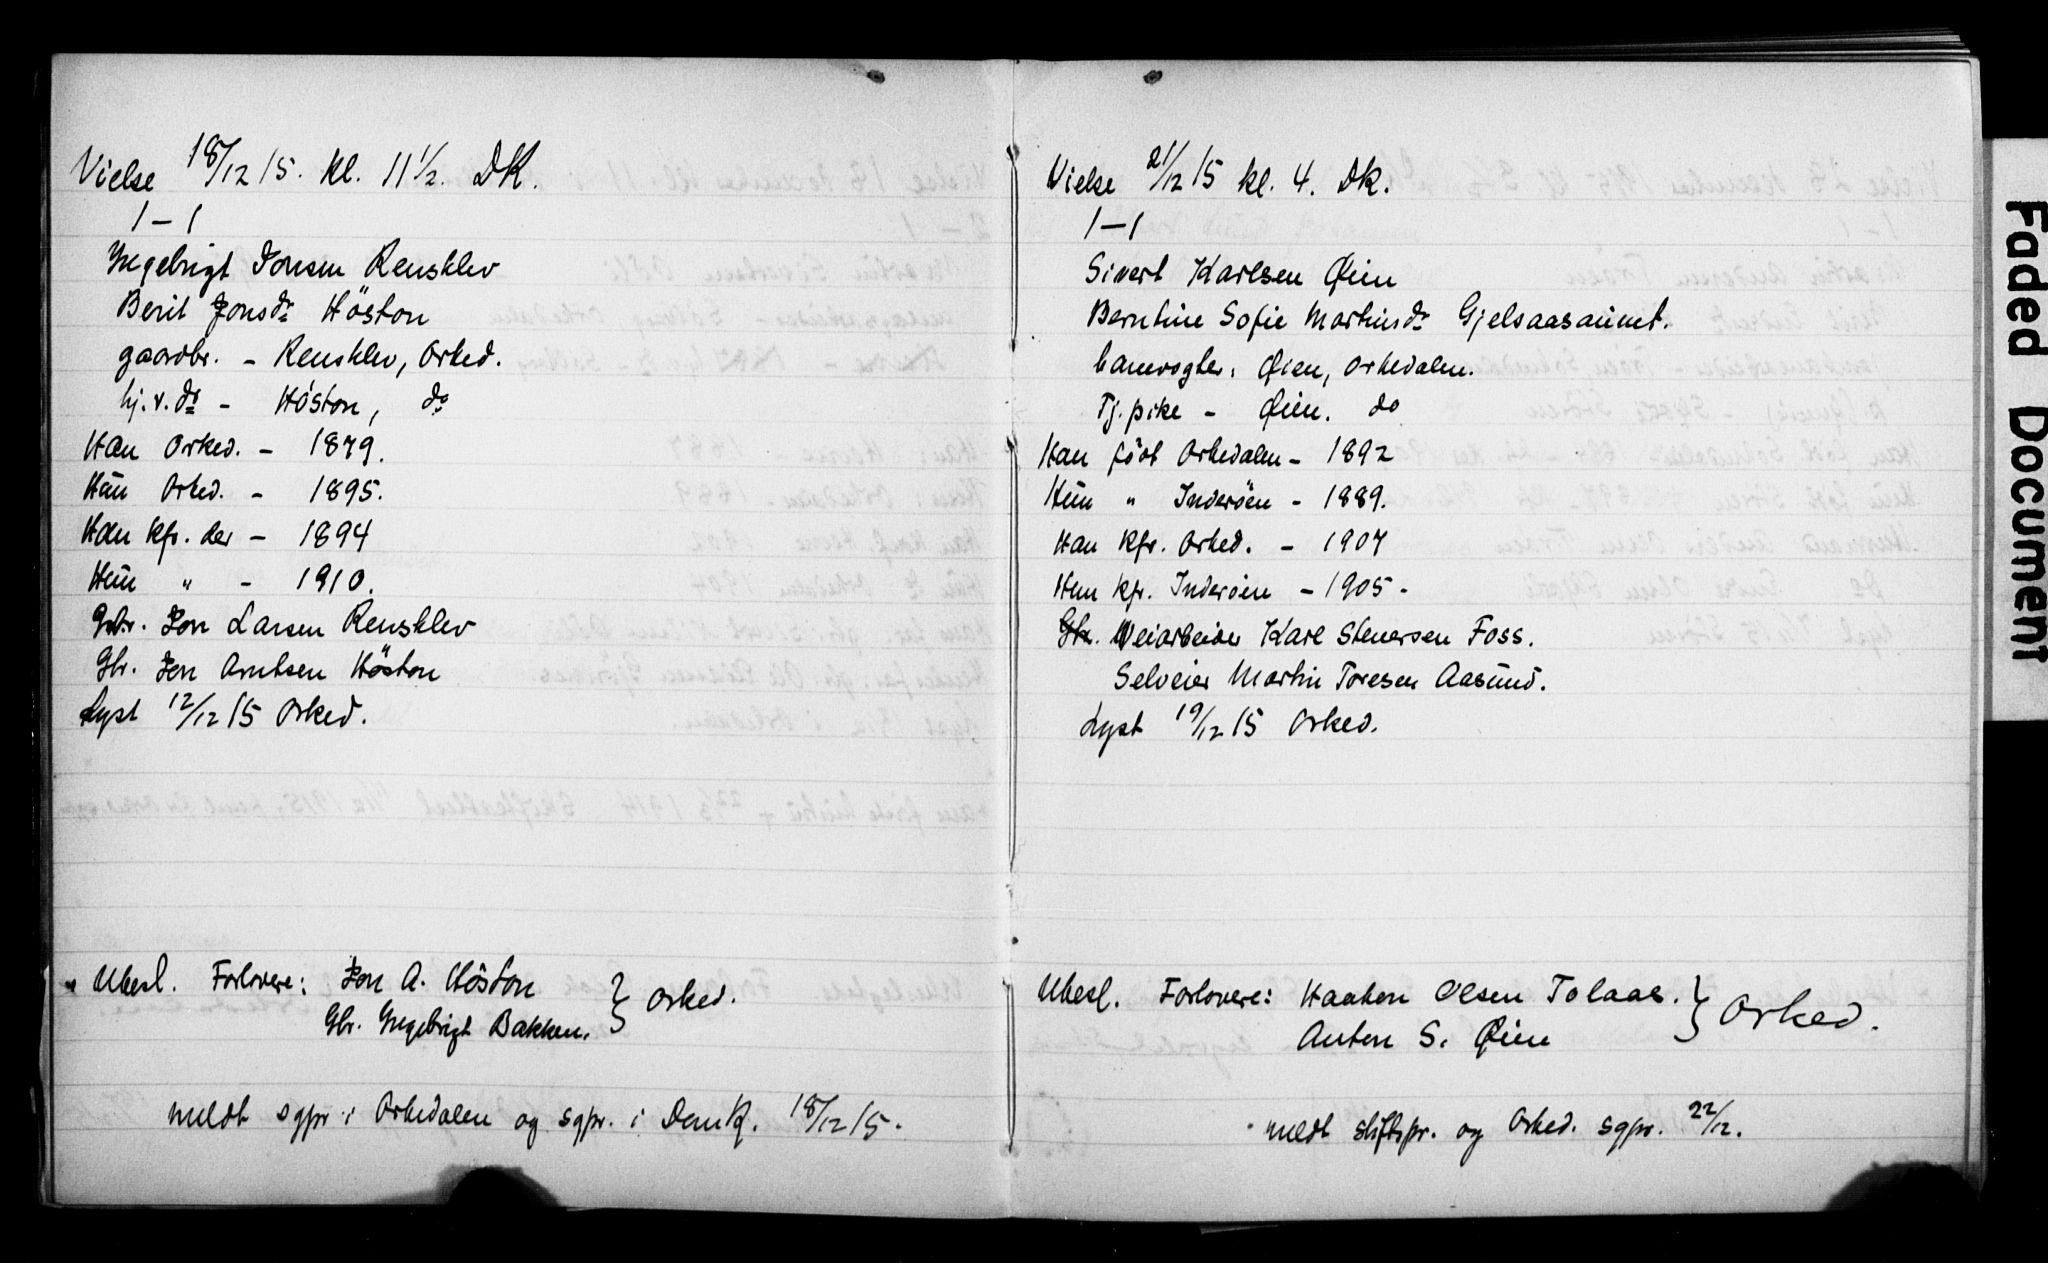 Vielse 18/12 15. kl. 11 1/2. DK.
1 – 1
Ingebrigt Jonsen Rensklev
Berit Jonsdr Höston
gaardbr. – Rensklev, Orked.
hj.v. dr – Höston, do
Han Orked. – 1879.
Hun Orked. – 1895.
Han kfr. der – 1894
Hun " – 1910.
Gbr. Jon Larsen Rensklev
Gbr. Jon Arntsen Höston
Lyst 12/12 15 Orked.
Ubesl. Forlovere: Jon A. Höston } Orked.
Gbr. Ingebrigt Bakken.
meldt sgpr. i Orkedalen og sgpr. i Domk. 18/12 15.
Vielse 21/12 15 kl. 4. Dk.
1 – 1
Sivert Karlsen Øien
Berntine Sofie Martinsdr Gjelsaasaunet.
banevogter, Øien, Orkedalen.
Tj.pike – Øien. do
Han födt Orkedalen – 1892
Hun " Inderöen – 1889.
Han kfr. Orked. – 1907
Hun kfr. Inderöen – 1905 –
Gbr. Veiarbeider Karl Stenersen Foss.
Selveier Martin Toresen Aasund.
Lyst 19/12 15 Orked.
Ubesl. Forlovere: Haakon Olsen Tolaas. } Orked.
Anton S. Øien
meldt stiftspr. og Orked. sgpr. 22/12.
Faded Document